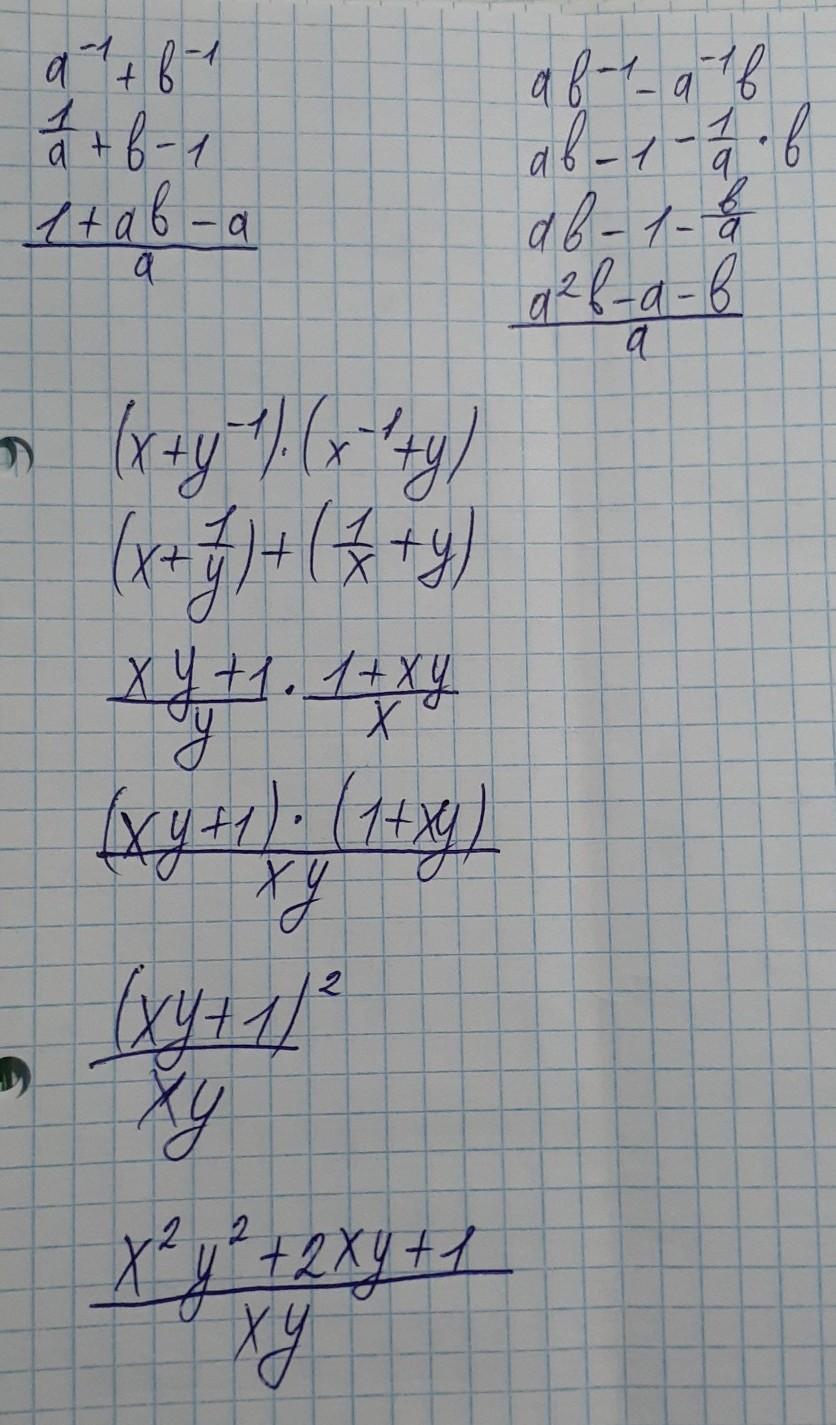 a⁻¹ + b⁻¹
1/a + b - 1
(1 + ab - a)/a
ab⁻¹ - a⁻¹b
ab - 1 - 1/a · b
ab - 1 - b/a
(a²b - a - b)/a
(x+y⁻¹)·(x⁻¹+y)
(x + 1/y) + (1/x + y)
(xy+1)/y · (1+xy)/x
((xy+1)·(1+xy))/xy
(xy+1)²/xy
(x²y² + 2xy + 1)/xy